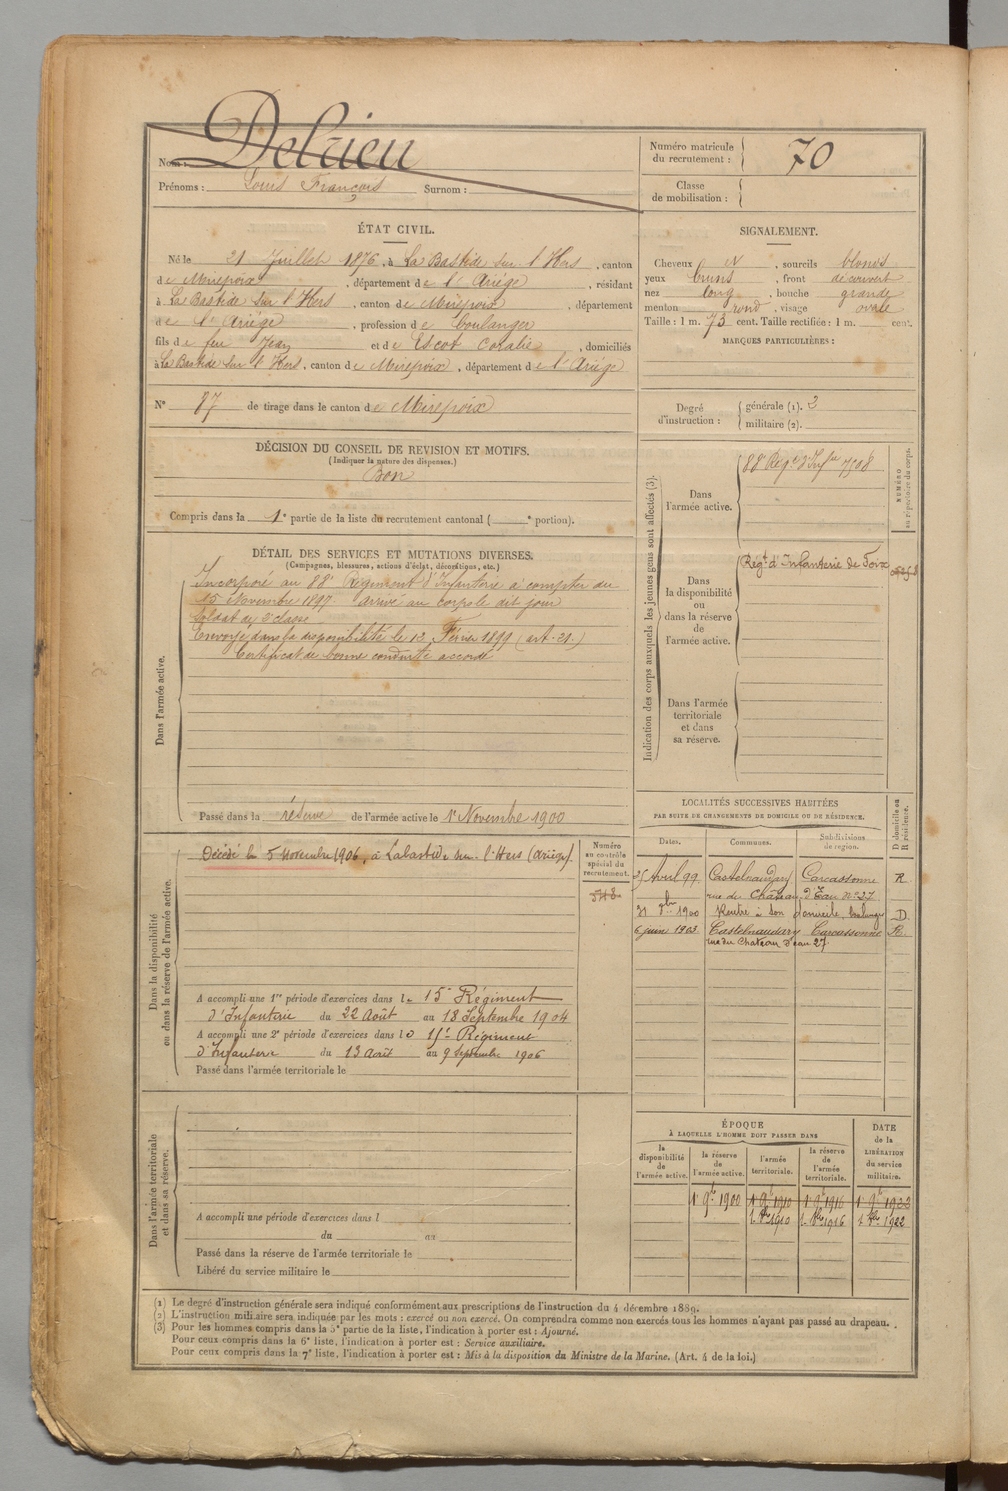 Nom : Delrieu
Prénoms : Louis François Surnom :
Numéro matricule du recrutement : 70
Classe de mobilisation :
ÉTAT CIVIL.
Né le 21 Juillet 1876, à La Bastide sur l'Hers, canton
de Mirepoix, département de l'Ariège, résidant
à La Bastide sur l'Hers, canton de Mirepoix, département
de l'Ariège, profession de boulanger
fils de feu Jean et de Escot Coralie, domiciliés
à La Bastide sur l'Hers, canton de Mirepoix, département de l'Ariège
N° 87 de tirage dans le canton de Mirepoix
SIGNALEMENT.
Cheveux et, sourcils blonds
yeux bruns, front découvert
nez long, bouche grande
menton rond, visage ovale
Taille : 1 m. 73 cent. Taille rectifiée : 1 m. cent.
MARQUES PARTICULIÈRES :
Degré d'instruction : générale (1). 3
militaire (2).
DÉCISION DU CONSEIL DE REVISION ET MOTIFS.
(Indiquer la nature des dispenses.)
Bon
Compris dans la 1e partie de la liste du recrutement cantonal ( e portion).
DÉTAIL DES SERVICES ET MUTATIONS DIVERSES.
(Campagnes, blessures, actions d'éclat, décorations, etc.)
Dans l'armée active.
Incorporé au 88e Régiment d'Infanterie à compter du
15 Novembre 1897. arrivé au corps le dit jour
Soldat de 2e classe
Envoyé dans la disponibilité le 12 Février 1899 (art. 21.)
Certificat de bonne conduite accordé
Passé dans la réserve de l'armée active le 1er Novembre 1900
Indication des corps auxquels les jeunes gens sont affectés (3).
NUMÉRO au répertoire du corps.
Dans l'armée active.
88e Régt d'Infie 7508
Dans la disponibilité ou dans la réserve de l'armée active.
Régt d'Infanterie de Foix
Dans l'armée territoriale et dans sa réserve.
Dans la disponibilité ou dans la réserve de l'armée active.
Décédé le 5 Novembre 1906, à Labastide sur l'Hers (Ariège)
Numéro au contrôle spécial du recrutement.
548
A accompli une 1re période d'exercices dans le 15e Régiment
d'Infanterie du 22 Août au 18 Septembre 1904
A accompli une 2e période d'exercices dans le 15e Régiment
d'Infanterie du 13 août au 9 Septembre 1906
Passé dans l'armée territoriale le
LOCALITÉS SUCCESSIVES HABITÉES
PAR SUITE DE CHANGEMENTS DE DOMICILE OU DE RÉSIDENCE.
D domicile ou R résidence.
Dates. Communes. Subdivisions de région.
25 Avril 99 Castelnaudary Carcassonne R
rue du Château d'Eau n° 27
31 8bre 1900 Rentre à son domicile, boulanger D.
6 juin 1903 Castelnaudary Carcassonne R.
rue du Chateau d'eau 27
Dans l'armée territoriale et dans sa réserve.
A accompli une période d'exercices dans l
du au
Passé dans la réserve de l'armée territoriale le
Libéré du service militaire le
ÉPOQUE
À LAQUELLE L'HOMME DOIT PASSER DANS
DATE de la LIBÉRATION du service militaire.
la disponibilité de l'armée active. la réserve de l'armée active. l'armée territoriale. la réserve de l'armée territoriale.
1er 9bre 1900 1er 9bre 1910 1er 9bre 1916 1er 9bre 1922
1er 8bre 1910 1er 8bre 1916 1er 8bre 1922
(1) Le degré d'instruction générale sera indiqué conformément aux prescriptions de l'instruction du 4 décembre 1889.
(2) L'instruction militaire sera indiquée par les mots : exercé ou non exercé. On comprendra comme non exercés tous les hommes n'ayant pas passé au drapeau.
(3) Pour les hommes compris dans la 5e partie de la liste, l'indication à porter est : Ajourné.
Pour ceux compris dans la 6e liste, l'indication à porter est : Service auxiliaire.
Pour ceux compris dans la 7e liste, l'indication à porter est : Mis à la disposition du Ministre de la Marine. (Art. 4 de la loi.)